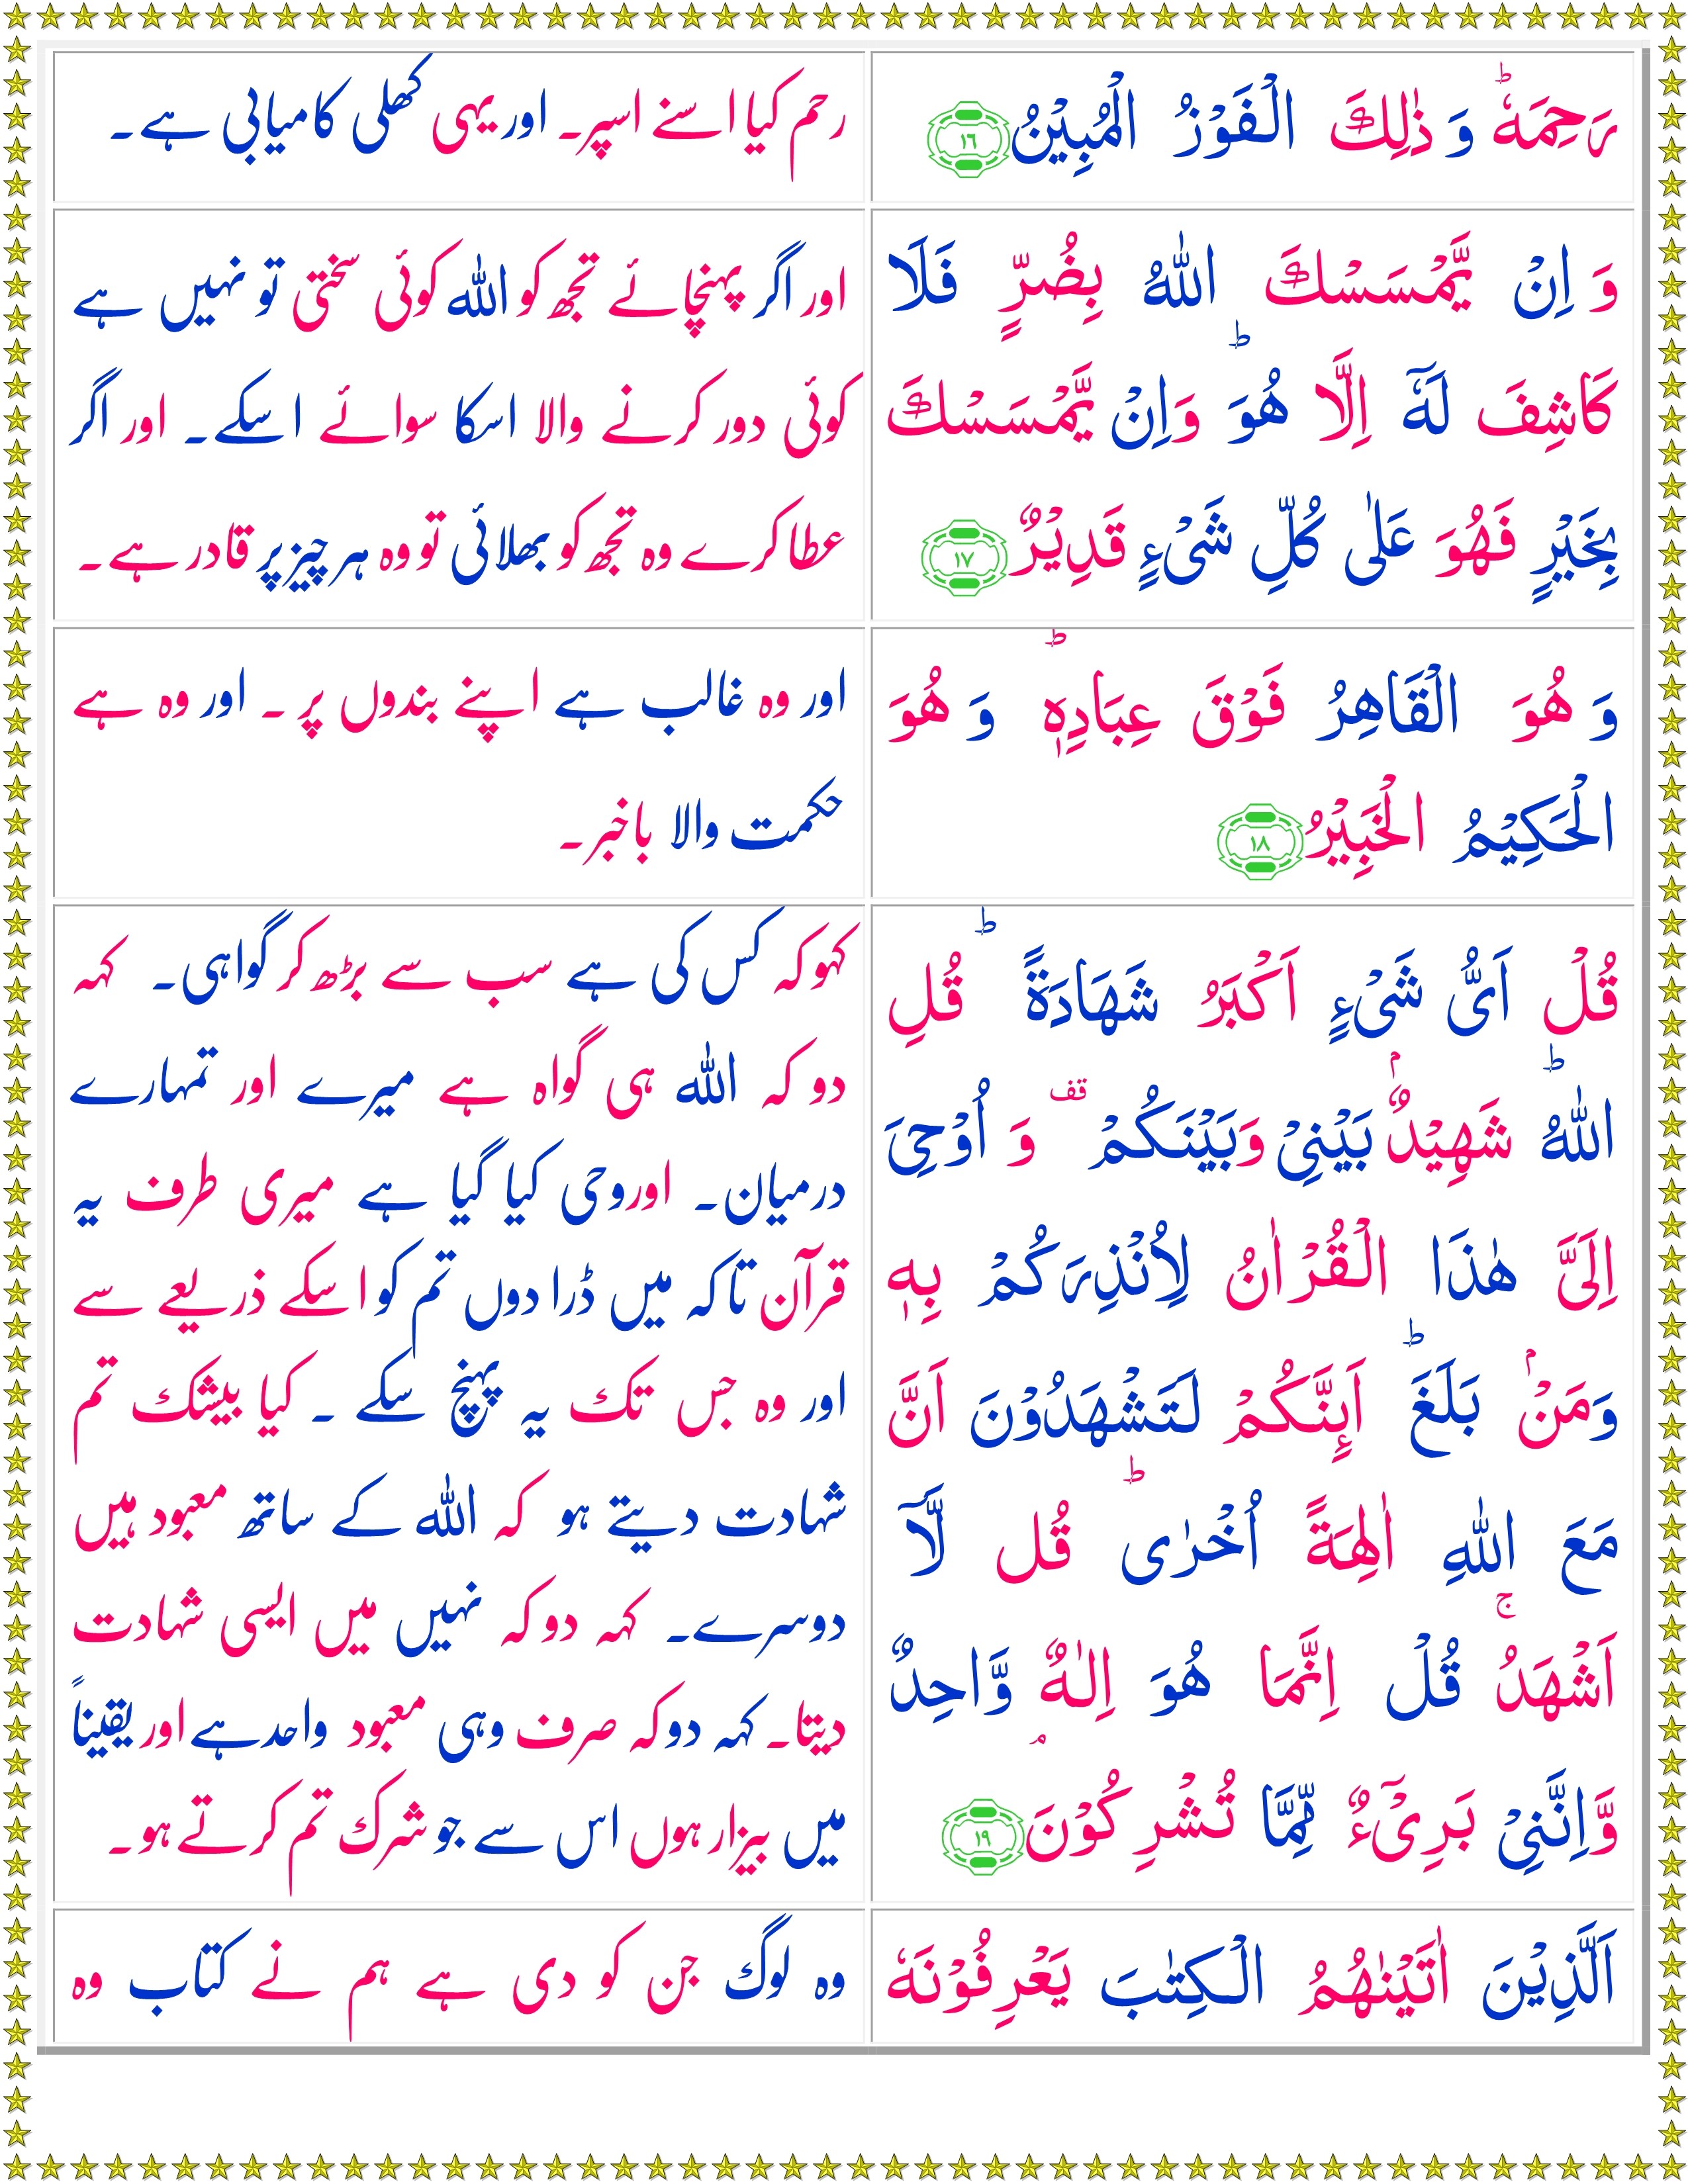 رَحِمَهٗ ؕ وَ ذٰلِكَ الْفَوْزُ الْمُبِیْنُ ۱۶
رحم کیا اسنے اسپر۔ اور یہی کھلی کامیابی ہے۔
وَ اِنْ یَّمْسَسْكَ اللّٰهُ بِضُرٍّ فَلَا
كَاشِفَ لَهٗۤ اِلَّا هُوَ ؕ وَاِنْ یَّمْسَسْكَ
بِخَیْرٍ فَهُوَ عَلٰی كُلِّ شَیْءٍ قَدِیْرٌ ۱۷
اور اگر پہنچائے تجھ کو اللہ کوئی سختی تو نہیں ہے
کوئی دور کرنے والا اسکا سوائے اسکے۔ اور اگر
عطا کرے وہ تجھ کو بھلائی تو وہ ہر چیز پر قادر ہے۔
وَ هُوَ الْقَاهِرُ فَوْقَ عِبَادِهٖ ؕ وَ هُوَ
الْحَكِیْمُ الْخَبِیْرُ ۱۸
اور وہ غالب ہے اپنے بندوں پر ۔ اور وہ ہے
حکمت والا باخبر۔
قُلْ اَیُّ شَیْءٍ اَكْبَرُ شَهَادَةً ؕ قُلِ
اللّٰهُ ؕ شَهِیْدٌۢ بَیْنِیْ وَبَیْنَكُمْ قف وَ اُوْحِیَ
اِلَیَّ هٰذَا الْقُرْاٰنُ لِاُنْذِرَكُمْ بِهٖ
وَمَنْۢ بَلَغَ ؕ اَىِٕنَّكُمْ لَتَشْهَدُوْنَ اَنَّ
مَعَ اللّٰهِ اٰلِهَةً اُخْرٰی ؕ قُل لَّاۤ
اَشْهَدُ ۚ قُلْ اِنَّمَا هُوَ اِلٰهٌ وَّاحِدٌ
وَّاِنَّنِیْ بَرِیْٓءٌ مِّمَّا تُشْرِكُوْنَ ۘ ۱۹
کہو کہ کس کی ہے سب سے بڑھ کر گواہی۔ کہہ
دو کہ اللہ ہی گواہ ہے میرے اور تمہارے
درمیان۔ اور وحی کیا گیا ہے میری طرف یہ
قرآن تاکہ میں ڈرا دوں تم کو اسکے ذریعے سے
اور وہ جس تک یہ پہنچ سکے ۔ کیا بیشک تم
شہادت دیتے ہو کہ اللہ کے ساتھ معبود ہیں
دوسرے۔ کہہ دو کہ نہیں میں ایسی شہادت
دیتا۔ کہہ دو کہ صرف وہی معبود واحد ہے اور یقیناً
میں بیزار ہوں اس سے جو شرک تم کرتے ہو۔
اَلَّذِیْنَ اٰتَیْنٰهُمُ الْكِتٰبَ یَعْرِفُوْنَهٗ
وہ لوگ جن کو دی ہے ہم نے کتاب وہ